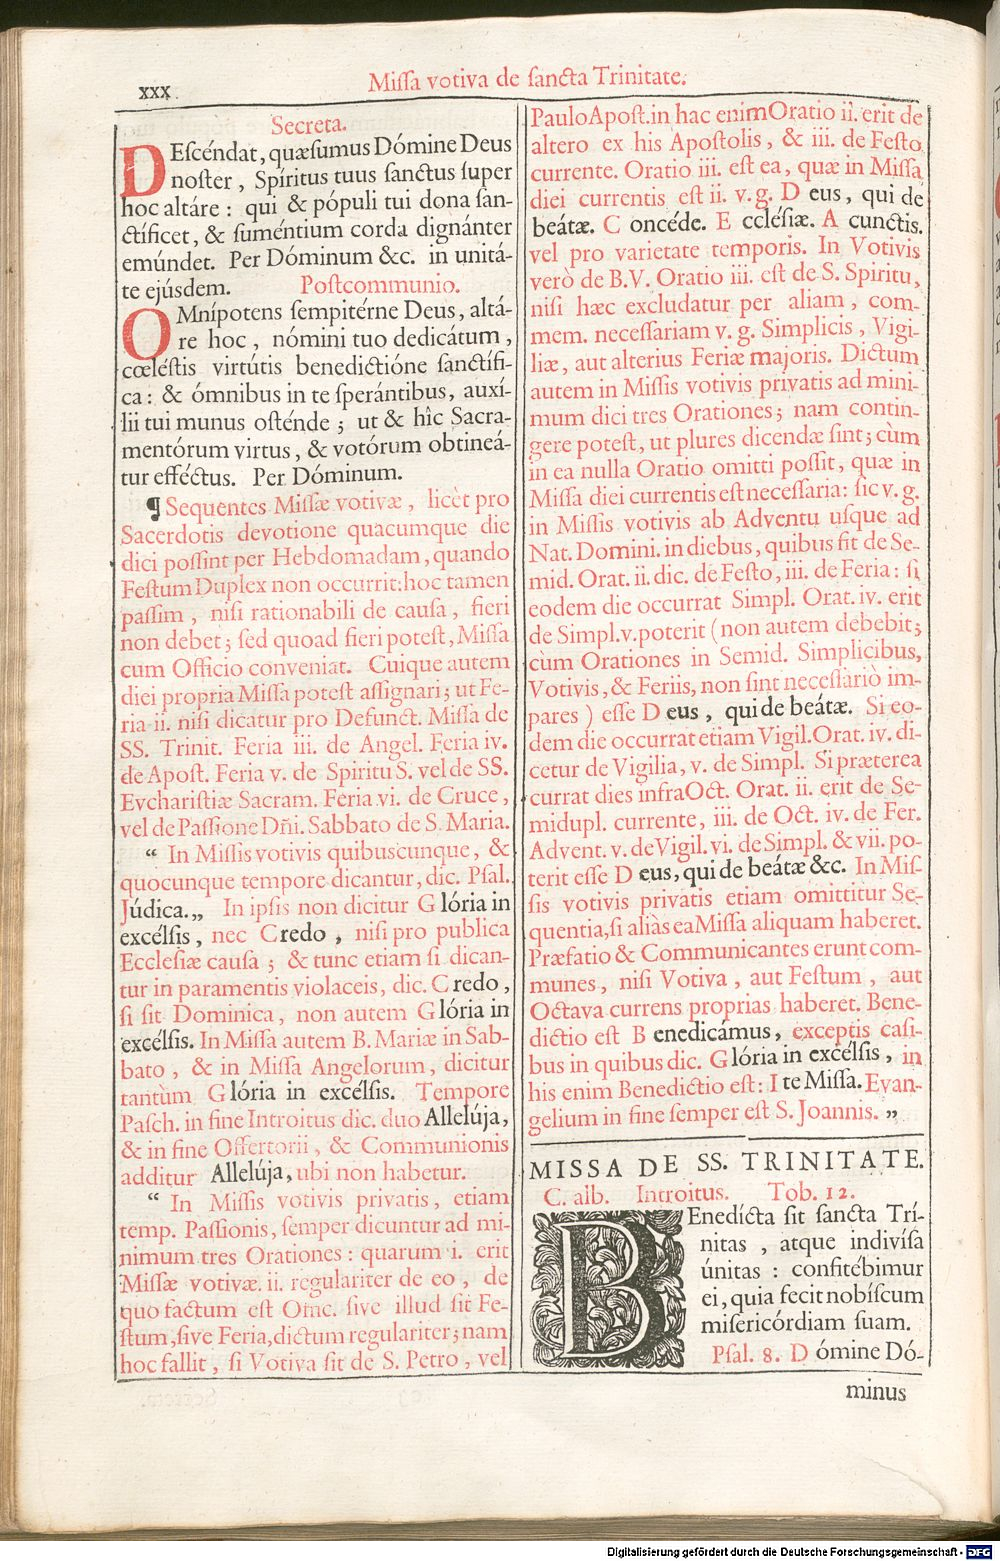 xxx.
Miſſa votiva de ſancta Trinitate.
Secreta.
DEſcéndat, quæſumus Dómine Deus
noſter, Spíritus tuus ſanctus ſuper
hoc altáre: qui & pópuli tui dona ſan-
ctíficet, & ſuméntium corda dignánter
emúndet. Per Dóminum &c. in unitá-
te ejúsdem.
Poſtcommunio.
OMnípotens ſempitérne Deus, altá-
re hoc, nómini tuo dedicátum,
cœléſtis virtútis benedictióne ſanctífi-
ca: & ómnibus in te ſperántibus, auxí-
lii tui munus oſténde; ut & hîc Sacra-
mentórum virtus, & votórum obtineá-
tur efféctus. Per Dóminum.
¶ Sequentes Miſſæ votivæ, licèt pro
Sacerdotis devotione quacumque die
dici poſſint per Hebdomadam, quando
Feſtum Duplex non occurrit: hoc tamen
paſſim, niſi rationabili de cauſa, fieri
non debet; ſed quoad fieri poteſt, Miſſa
cum Officio conveniat. Cuique autem
diei propria Miſſa poteſt aſſignari; ut Fe-
ria ii. niſi dicatur pro Defunct. Miſſa de
SS. Trinit. Feria iii. de Angel. Feria iv.
de Apoſt. Feria v. de Spiritu S. vel de SS.
Evchariſtiæ Sacram. Feria vi. de Cruce,
vel de Paſſione Dñi. Sabbato de S. Maria.
“ In Miſſis votivis quibuscunque, &
quocunque tempore dicantur, dic. Pſal.
Júdica.„ In ipſis non dicitur Glória in
excélſis, nec Credo, niſi pro publica
Eccleſiæ cauſa; & tunc etiam ſi dican-
tur in paramentis violaceis, dic. Credo,
ſi ſit Dominica, non autem Glória in
excélſis. In Miſſa autem B. Mariæ in Sab-
bato, & in Miſſa Angelorum, dicitur
tantùm Glória in excélſis. Tempore
Paſch. in fine Introitus dic. duo Allelúja,
& in fine Offertorii, & Communionis
additur Allelúja, ubi non habetur.
“ In Miſſis votivis privatis, etiam
temp. Paſſionis, ſemper dicuntur ad mi-
nimum tres Orationes: quarum i. erit
Miſſæ votivæ. ii. regulariter de eo, de
quo factum eſt Offic. ſive illud ſit Fe-
ſtum, ſive Feria, dictum regulariter; nam
hoc fallit, ſi Votiva ſit de S. Petro, vel
Paulo Apoſt. in hac enim Oratio ii. erit de
altero ex his Apoſtolis, & iii. de Feſto
currente. Oratio iii. eſt ea, quæ in Miſſa
diei currentis eſt ii. v. g. Deus, qui de
beátæ. Concéde. Eccléſiæ. A cunctis.
vel pro varietate temporis. In Votivis
verò de B. V. Oratio iii. eſt de S. Spiritu,
niſi hæc excludatur per aliam, com-
mem. neceſſariam v. g. Simplicis, Vigi-
liæ, aut alterius Feriæ majoris. Dictum
autem in Miſſis votivis privatis ad mini-
mum dici tres Orationes; nam contin-
gere poteſt, ut plures dicendæ ſint; cùm
in ea nulla Oratio omitti poſſit, quæ in
Miſſa diei currentis eſt neceſſaria: ſic v. g.
in Miſſis votivis ab Adventu uſque ad
Nat. Domini. in diebus, quibus fit de Se-
mid. Orat. ii. dic. de Feſto, iii. de Feria: ſi
eodem die occurrat Simpl. Orat. iv. erit
de Simpl. v. poterit (non autem debebit;
cùm Orationes in Semid. Simplicibus,
Votivis, & Feriis, non ſint neceſſariò im-
pares) eſſe Deus, qui de beátæ. Si eo-
dem die occurrat etiam Vigil. Orat. iv. di-
cetur de Vigilia, v. de Simpl. Si præterea
currat dies infra Oct. Orat. ii. erit de Se-
midupl. currente, iii. de Oct. iv. de Fer.
Advent. v. de Vigil. vi. de Simpl. & vii. po-
terit eſſe Deus, qui de beátæ &c. In Miſ-
ſis votivis privatis etiam omittitur Se-
quentia, ſi aliàs ea Miſſa aliquam haberet.
Præfatio & Communicantes erunt com-
munes, niſi Votiva, aut Feſtum, aut
Octava currens proprias haberet. Bene-
dictio eſt Benedicámus, exceptis caſi-
bus in quibus dic. Glória in excélſis, in
his enim Benedictio eſt: Ite Miſſa. Evan-
gelium in fine ſemper eſt S. Joannis. „
MISSA DE SS. TRINITATE.
C. alb. Introitus. Tob. 12.
BEnedícta ſit ſancta Trí-
nitas, atque indivíſa
únitas: confitébimur
ei, quia fecit nobíſcum
miſericórdiam ſuam.
Pſal. 8. Dómine Dó-
minus
Digitalisierung gefördert durch die Deutsche Forschungsgemeinschaft - DFG